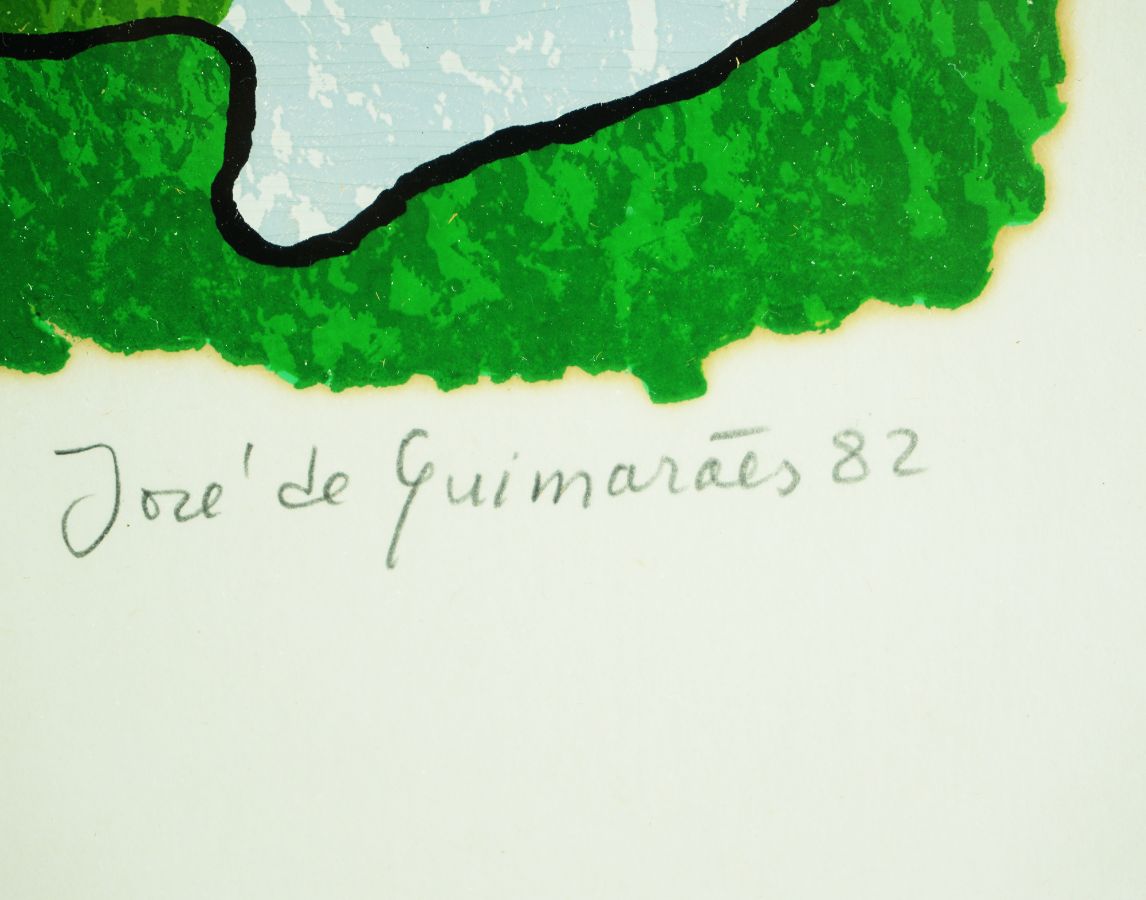 José de Guimarães 82